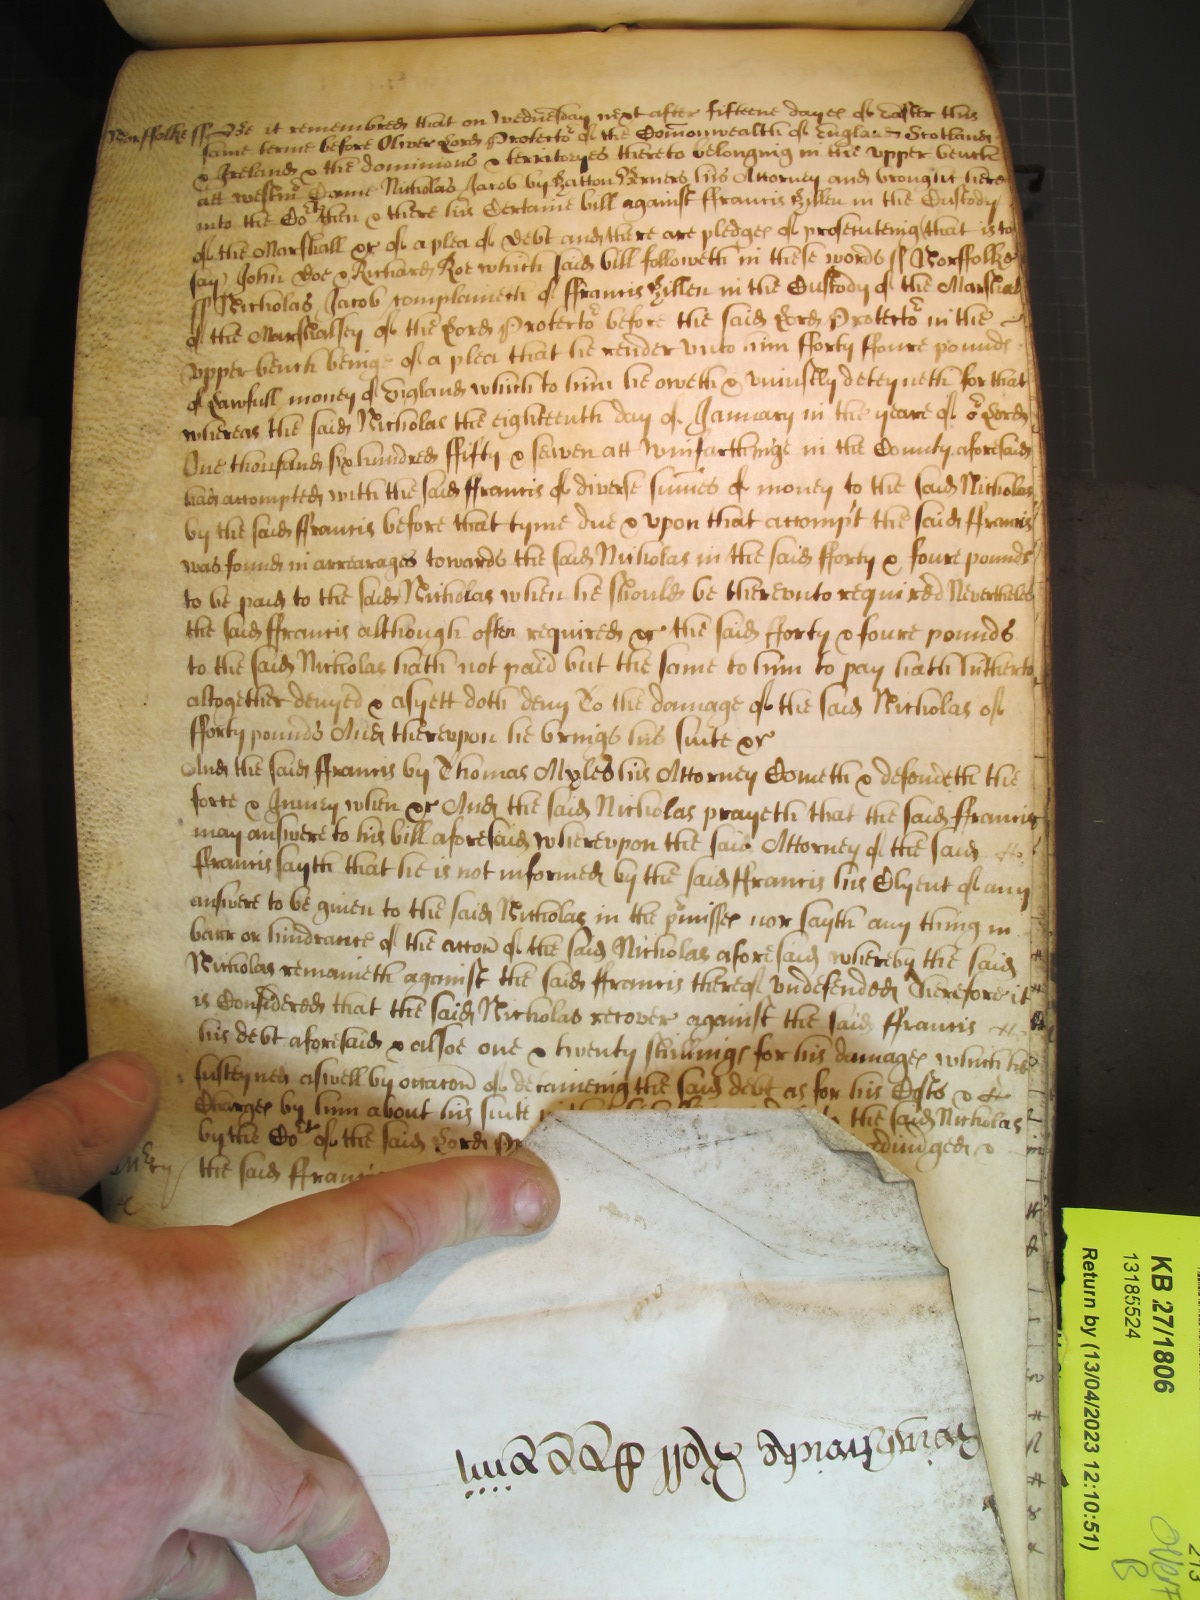 Norffolke ss Be it remembred that on Wednesday next after fifteene dayes of Easter this
same terme before Oliver Lord Protector of the Comonwealth of England Scotland
& Ireland & the dominions & territoryes thereto belonging in the upper bench
att Westmr Came Nicholas Jacob by Hatton Berners his Attorney and brought here
into the Cort then & there his Certaine bill against ffrancis Hillen in the Custody
of the Marshall &c of a plea of Debt and there are pledges of prosecuteing that is to
say John Doe & Richard Roe which said bill followeth in these words ss Norffolke
ss Nicholas Jacob complaineth of ffrancis Hillen in the Custody of the Marshal
of the Marshalsey of the Lord Protector before the said Lord Protector in the
upper bench being of a plea that he render unto him fforty ffoure pounds
of Lawfull money of England which to him he oweth & uniustly deteyneth for that
whereas the said Nicholas the eighteenth day of January in the yeare of or Lord
One thousand six hundred ffifty & seaven att Winfarthinge in the County aforesaid
had accompted with the said ffrancis of diverse sumes of money to the said Nicholas
by the said ffrancis before that tyme due & upon that accompt the said ffrancis
was found in arrearages towards the said Nicholas in the said fforty & foure pounds
to be paid to the said Nicholas when he should be thereunto required Neverthelesse
the said ffrancis although often required &c the said fforty & foure pounds
to the said Nicholas hath not paid but the same to him to pay hath hitherto
altogether denyed & as yett doth deny To the damage of the said Nicholas of
fforty pounds And thereupon he brings his suite &c
And the said ffrancis by Thomas Myles his Attorney Cometh & defendeth the
force & Iniury when &c And the said Nicholas prayeth that the said ffrancis
may answere to his bill aforesaid whereupon the said Attorney of the said
ffrancis sayth that he is not informed by the said ffrancis his Clyent of any
answere to be given to the said Nicholas in the pmisses nor sayth any thing in
barr or hindrance of the accon of the said Nicholas aforesaid whereby the said
Nicholas remaineth against the said ffrancis thereof undefended Therefore it
is Considered that the said Nicholas recover against the said ffrancis
his debt aforesaid & alsoe one & twenty shillings for his damages which he
susteyned aswell by occacon of deteineing the said debt as for his Costs &
Charges by him about his suite to the said Nicholas
by the Cort of the said Lord adiudged &
the said ffrancis
Roll
KB 27/1806
13185524
Return by (13/04/2023 12:10:51)